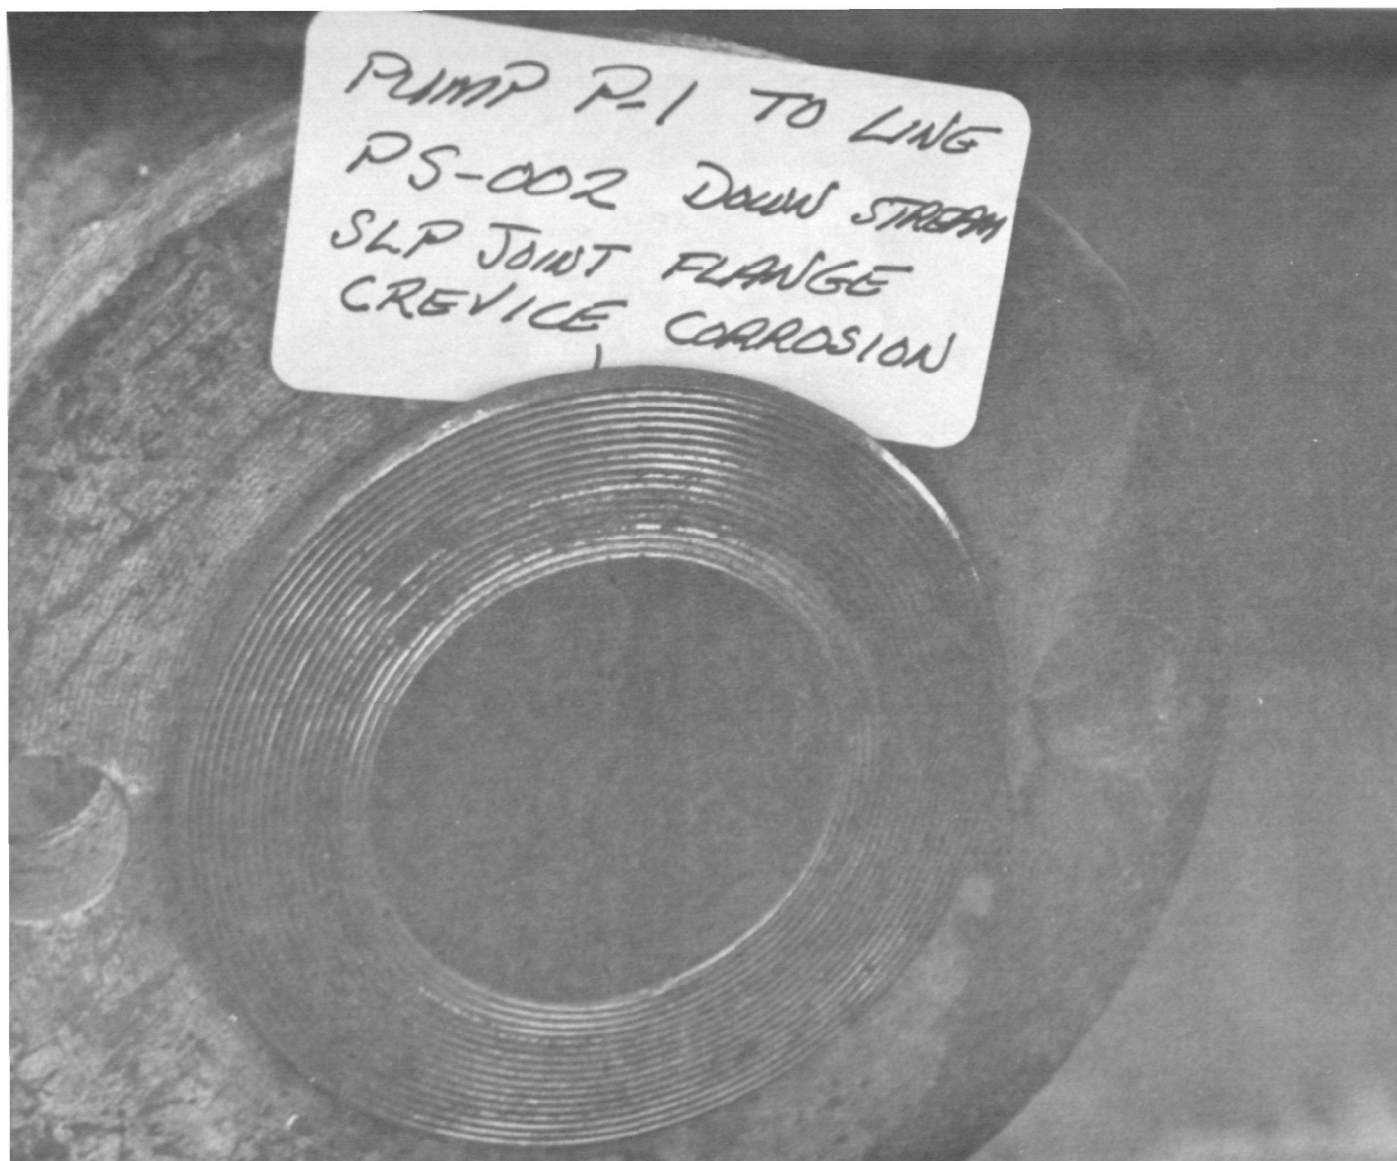 PUMP P-1 TO LINE
PS-002 DOWN STREAM
SLP JOINT FLANGE
CREVICE CORROSION